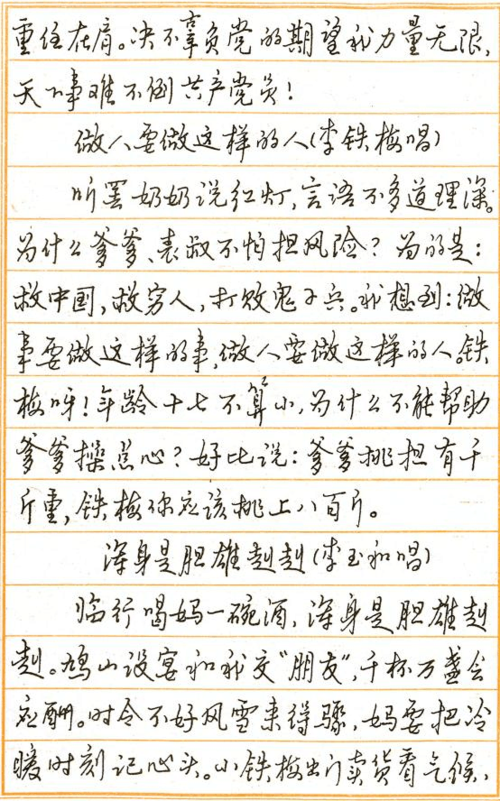 重任在肩。决不辜负党的期望我力量无限,
天下事难不倒共产党员!
做人要做这样的人(李铁梅唱)
听罢奶奶说红灯,言语不多道理深。
为什么爹爹、表叔不怕担风险?为的是:
救中国,救穷人,打败鬼子兵。我想到:做
事要做这样的事,做人要做这样的人。铁
梅呀!年龄十七不算小,为什么不能帮助
爹爹操点心?好比说:爹爹挑担有千
斤重,铁梅你应该挑上八百斤。
浑身是胆雄赳赳(李玉和唱)
临行喝妈一碗酒,浑身是胆雄赳
赳。鸠山设宴和我交“朋友”,千杯万盏会
应酬。时令不好风雪来得骤,妈要把冷
暖时刻记心头。小铁梅出门卖货看气候、